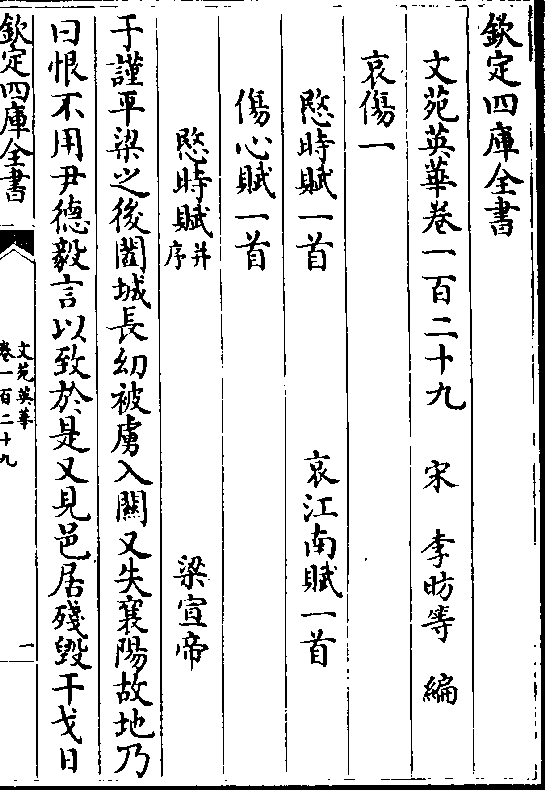 欽定四庫全書
文苑英華卷一百二十九 宋 李昉等 編
哀傷一
愍時賦一首 哀江南賦一首
傷心賦一首
愍時賦并序 梁宣帝
于謹平梁之後闔城長幼被虜入關又失襄陽故地乃
曰恨不用尹德毅言以致於是又見邑居殘毀干戈日
欽定四庫全書
文苑英華
卷一百二十九
一